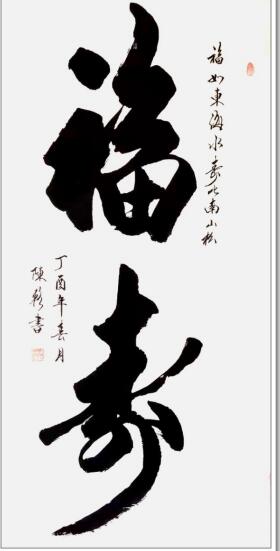 福如東海水壽比南山松
福壽
丁酉年春月
陳彩書